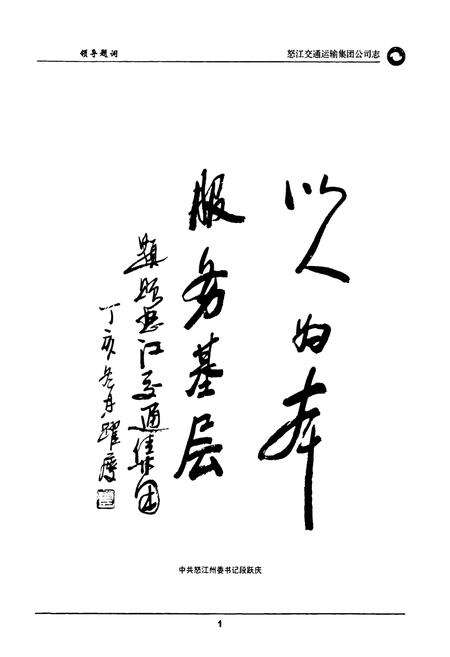 领导题词
怒江交通运输集团公司志
以人为本
服务基层
题赠怒江交通集团
丁亥冬月跃庆
中共怒江州委书记段跃庆
1